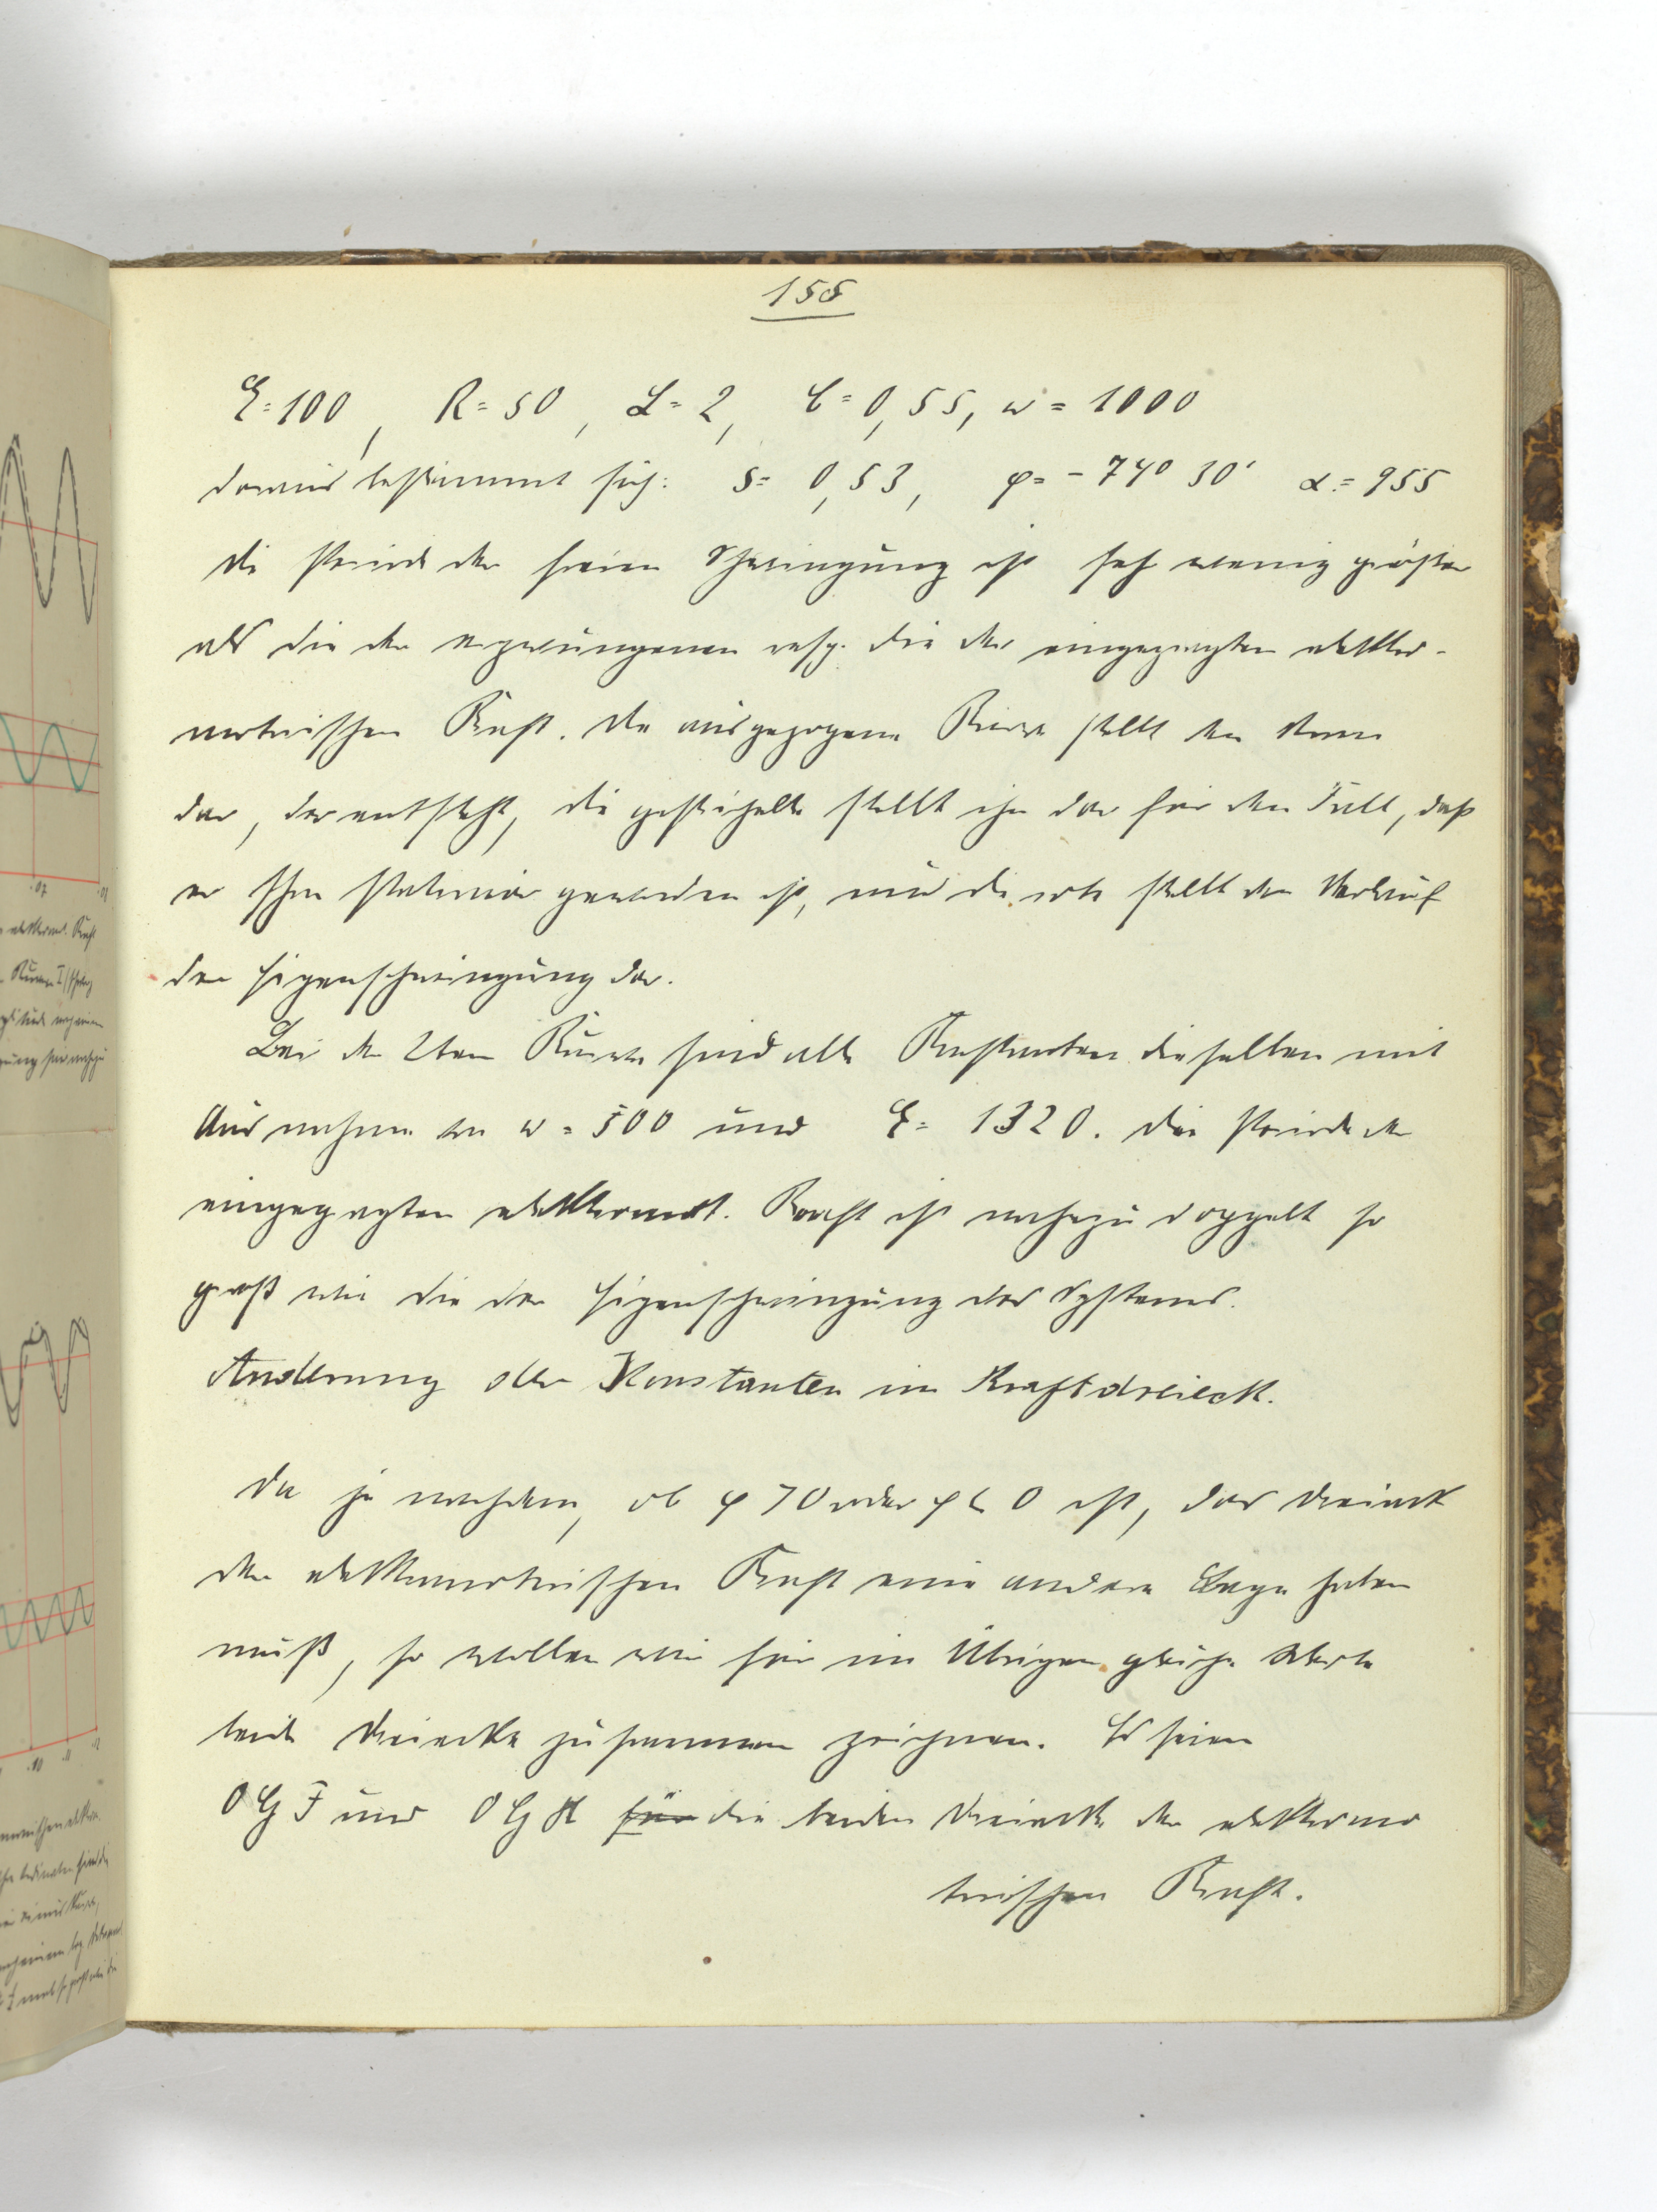 155
E = 100, R = 50, L = 2, C = 0,55, w = 1000
daraus bestimmt sich: S = 0,53, φ = - 74° 30' α = 955
Die Periode der freien Schwingung ist sehr wenig größer
als die der erzwungenen resp. die der eingeprägten elektro-
motorischen Kraft. Die ausgezogene Kurve stellt den Strom
dar, der entsteht, die gestrichelte stellt ihn dar für den Fall, daß
er schon stationär geworden ist, und die rote stellt den Verlauf
der Eigenschwingung dar.
Bei der 2ten Kurve sind alle Konstanten dieselben mit
Ausnahme von w = 500 und E = 1320. Die Periode der
eingeprägten elektromot. Kraft ist nahezu doppelt so
groß wie die der Eigenschwingung des Systems.
Änderung der Konstanten im Kraftdreieck.
Da je nachdem, ob φ > 0 oder φ < 0 ist, das Dreieck
der elektromotorischen Kraft eine andere Lage haben
muß, so wollen wir für im Übrigen gleiche Werte
beide Dreiecke zusammen zeichnen. Es seien
O G F und O G H für die beiden Dreiecke der elektromo
torischen Kraft.